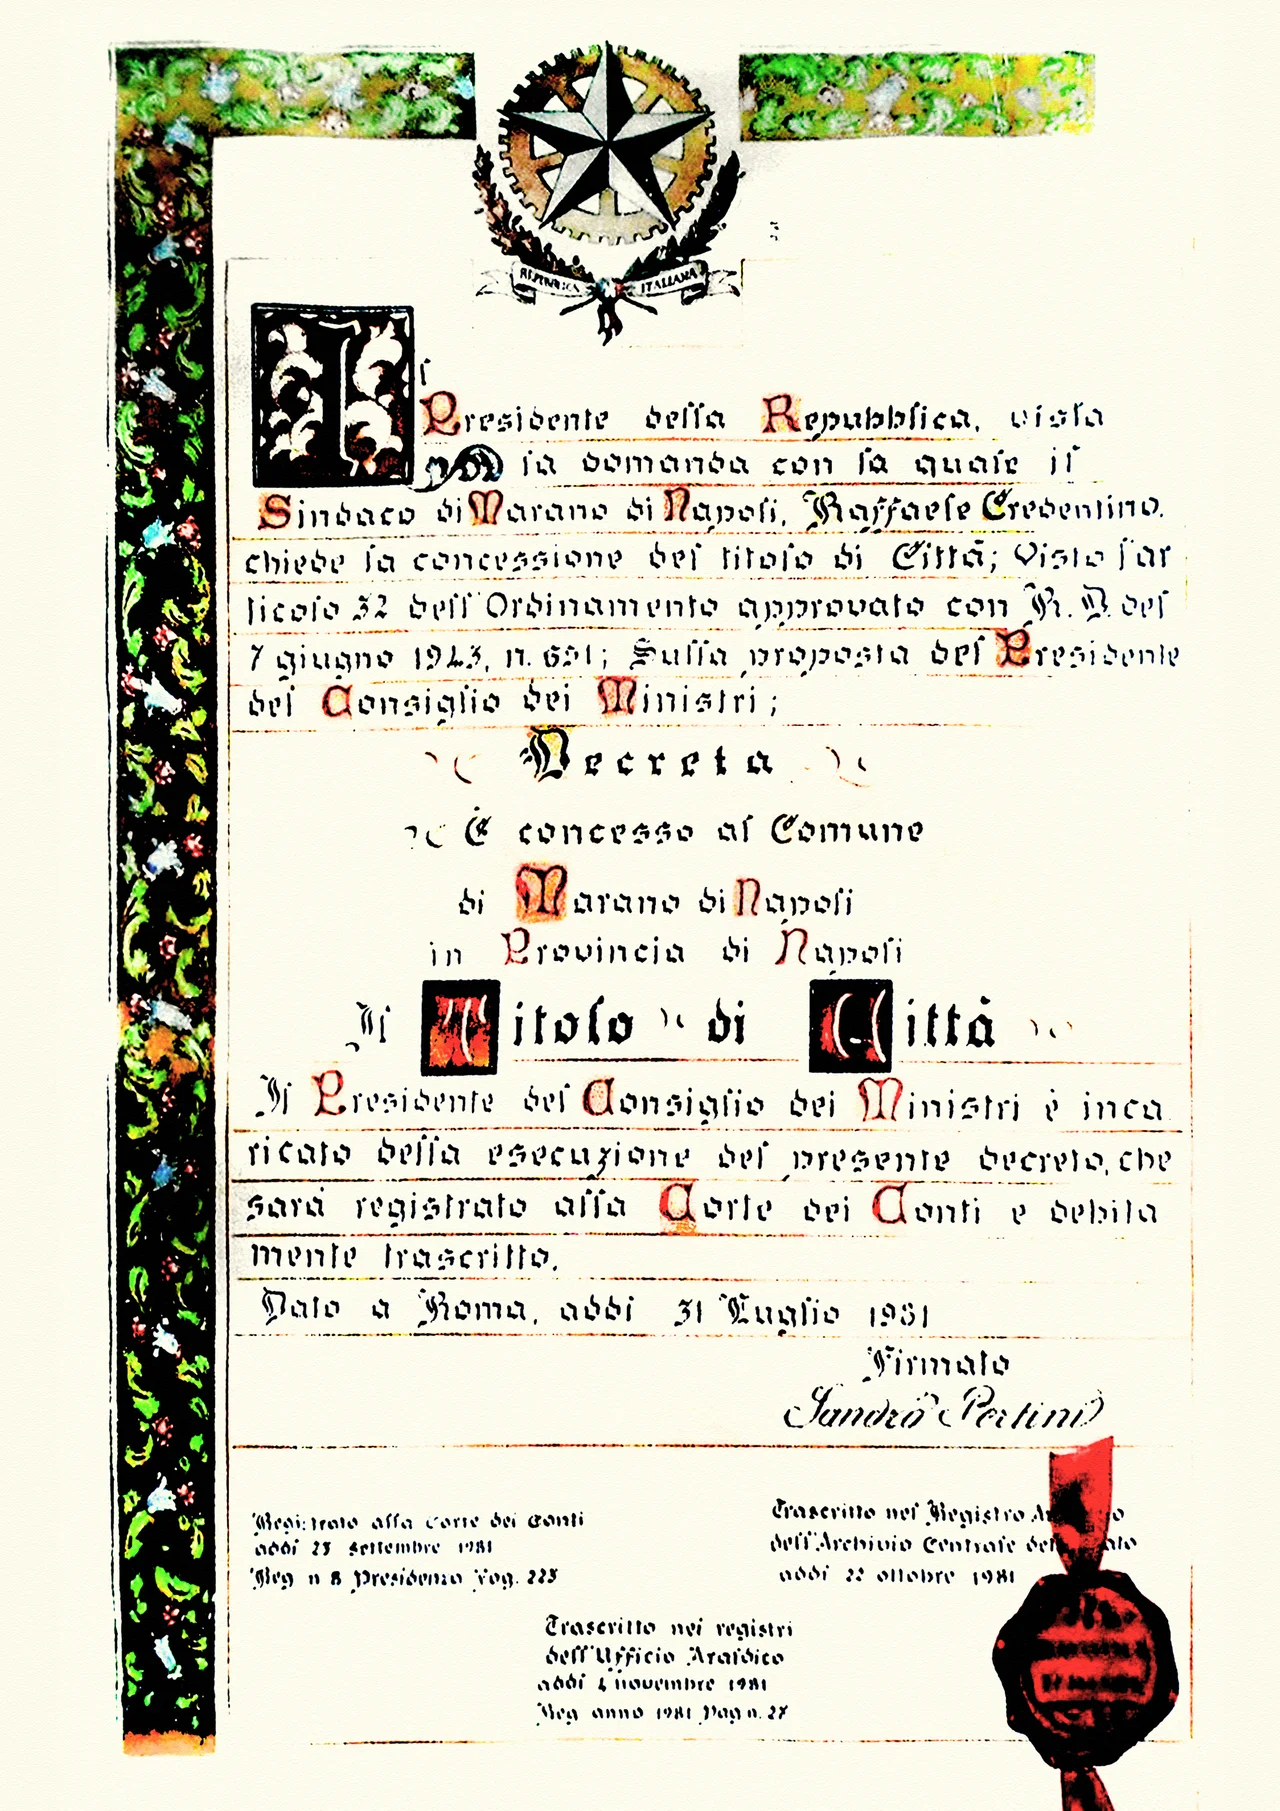 REPUBBLICA ITALIANA
Il
Presidente della Repubblica, vista
la domanda con la quale il
Sindaco di Marano di Napoli, Raffaele Credentino,
chiede la concessione del titolo di Città; Visto l'ar
ticolo 32 dell'Ordinamento approvato con R. D. del
7 giugno 1943, n. 651; Sulla proposta del Presidente
del Consiglio dei Ministri;
Decreta
È concesso al Comune
di Marano di Napoli
in Provincia di Napoli
Il Titolo di Città
Il Presidente del Consiglio dei Ministri è inca
ricato della esecuzione del presente decreto, che
sarà registrato alla Corte dei Conti e debita
mente trascritto.
Dato a Roma, addi 31 Luglio 1981
Firmato
Sandro Pertini
Registrato alla Corte dei Conti
addi 28 settembre 1981
Reg n 8 Presidenza Fog. 225
Trascritto nel Registro
dell'Archivio Centrale dello Stato
addi 22 ottobre 1981
Trascritto nei registri
dell'Ufficio Araldico
addi 4 novembre 1981
Reg anno 1981 Pag n. 27